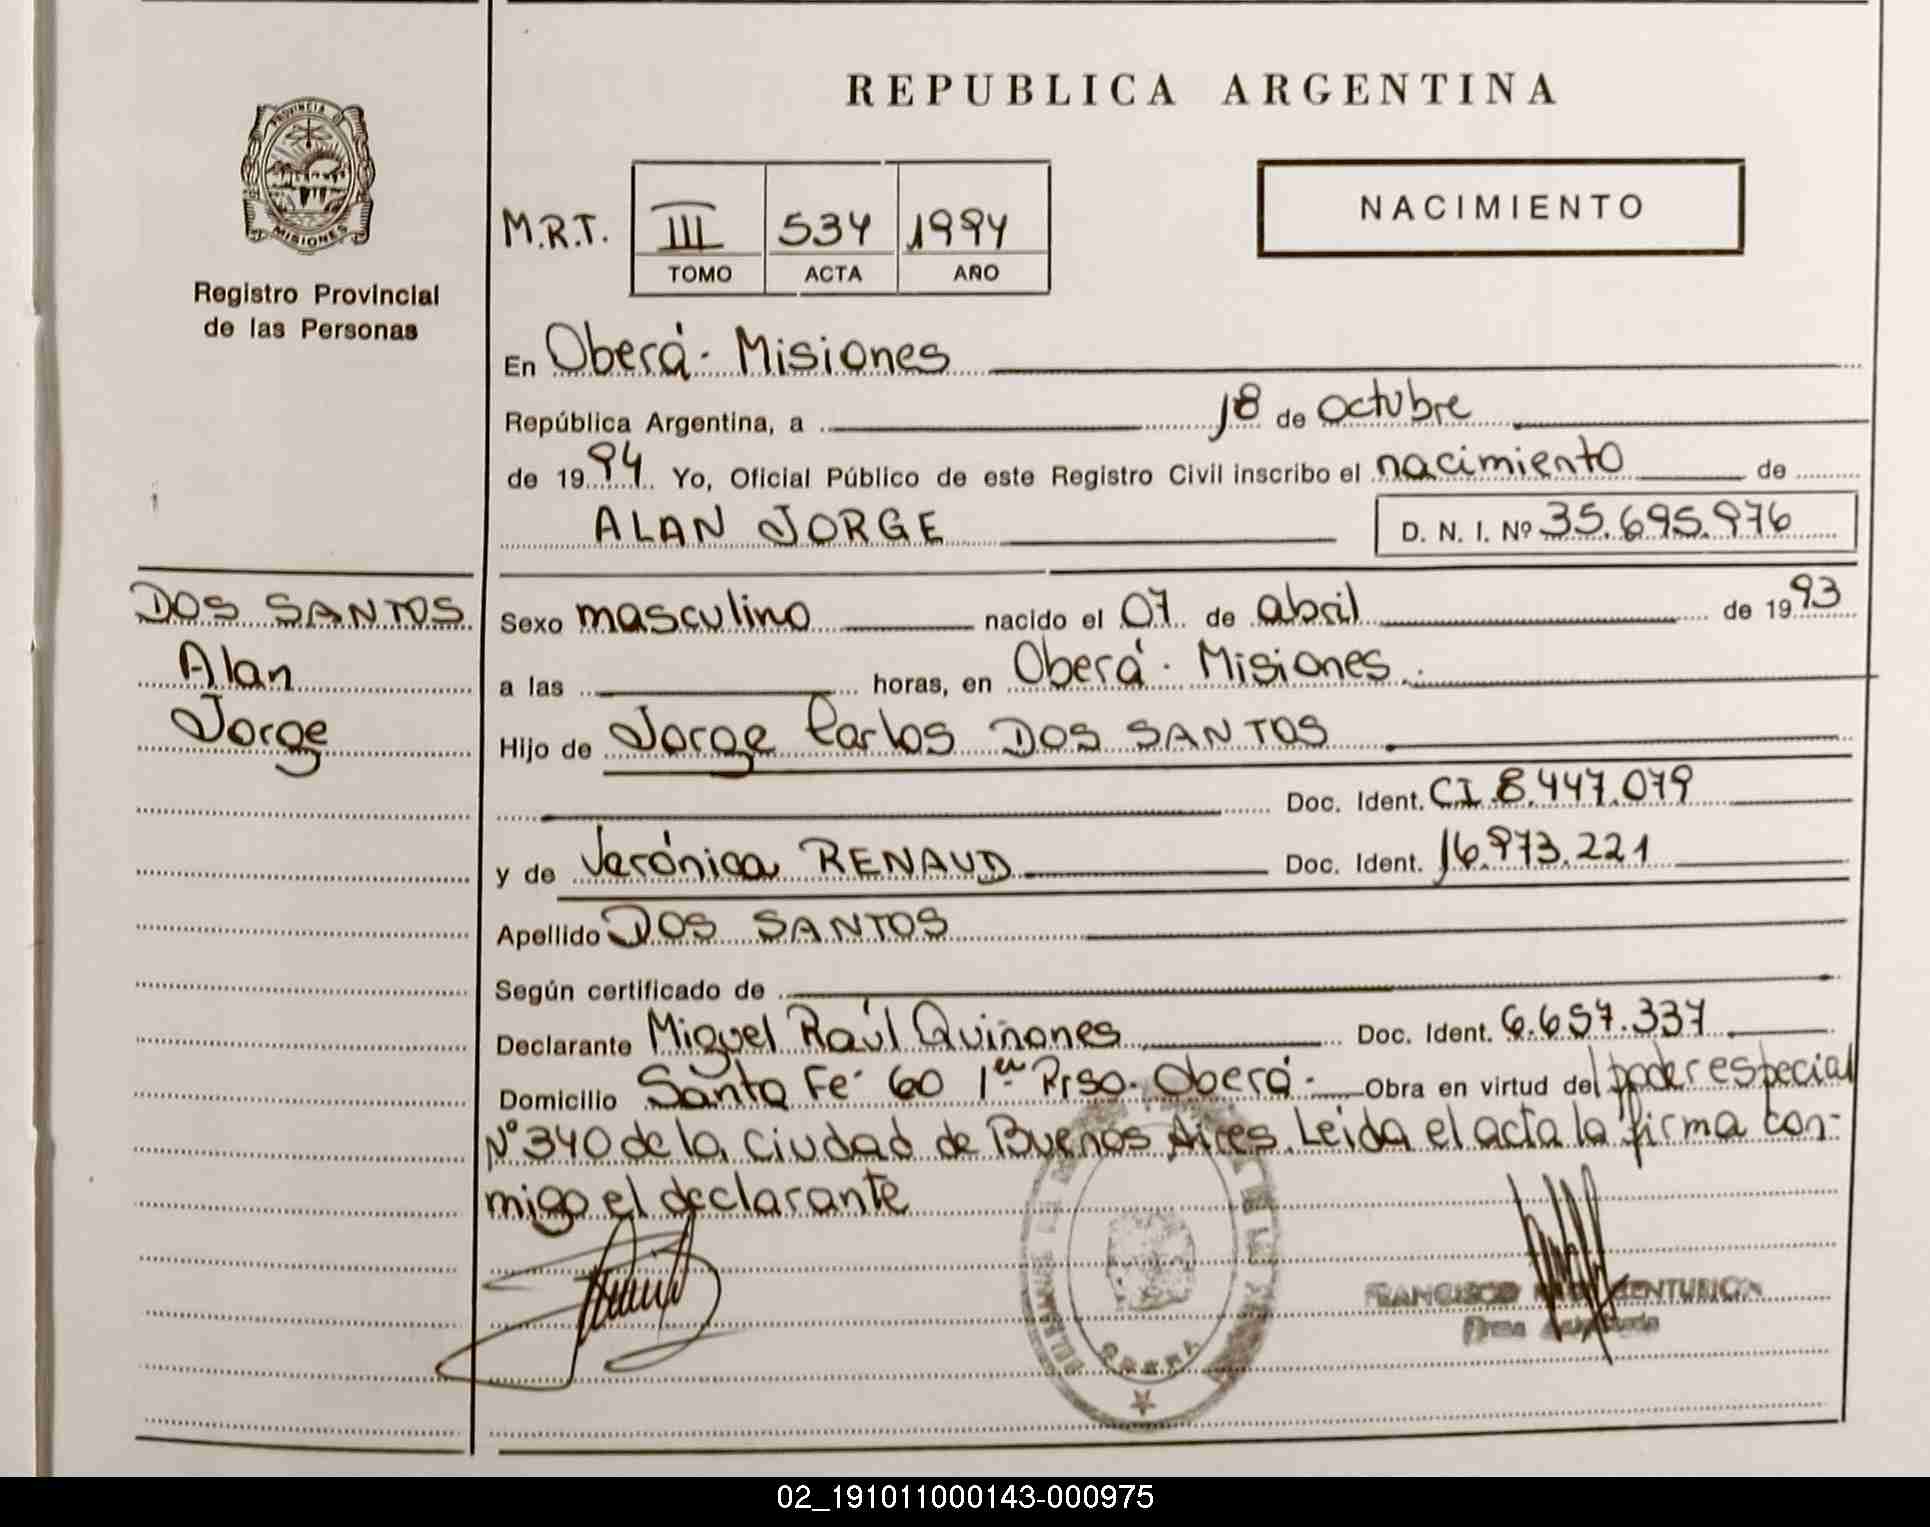 REPUBLICA ARGENTINA
PROVINCIA DE
MISIONES
Registro Provincial
de las Personas
M.R.T.
III 534 1994
TOMO ACTA AÑO
NACIMIENTO
En Oberá - Misiones
República Argentina, a 18 de octubre
de 1994 Yo, Oficial Público de este Registro Civil inscribo el nacimiento de
ALAN JORGE D. N. I. Nº 35.695.976
DOS SANTOS
Alan
Jorge
Sexo masculino nacido el 07 de abril de 1993
a las horas, en Oberá - Misiones.
Hijo de Jorge Carlos DOS SANTOS
Doc. Ident. CI 8.447.079
y de Verónica RENAUD Doc. Ident. 16.973.221
Apellido DOS SANTOS
Según certificado de
Declarante Miguel Raúl Quiñones Doc. Ident. 6.657.337
Domicilio Santa Fé 60 1er Piso. Oberá - Obra en virtud del poder especial
Nº 340 de la ciudad de Buenos Aires. Leida el acta la firma con-
migo el declarante
FRANCISCO CENTURION
Firma
OBERA
02_191011000143-000975